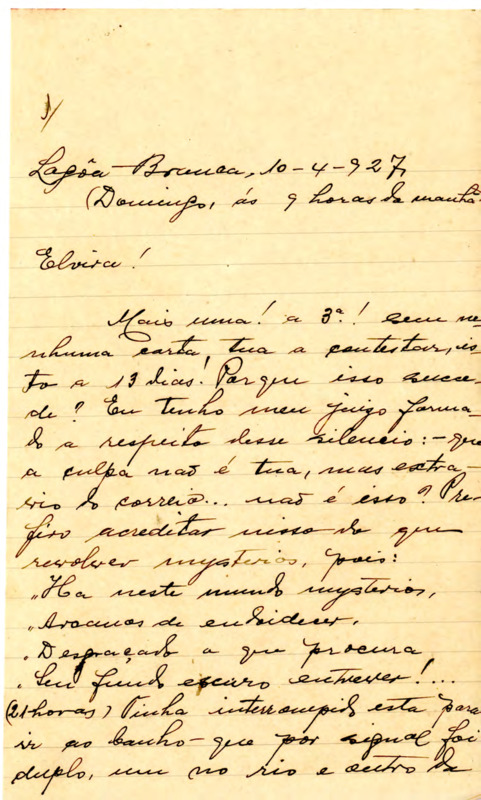 1/
Lagôa Branca, 10-4-927,
(Domingo, ás 9 horas da manhã
Elvira!
Mais uma! a 3ª! sem ne-
nhuma carta, tua a contestar, is-
to a 13 dias! Porque isso succe-
de? Eu tenho meu juizo forma-
do a respeito desse silencio: - que
a culpa não é tua, mas extra-
vio do correio... não é isso? Pre-
firo acreditar nisso do que
revolver mysterios, pois:
"Ha neste mundo mysterios,
"Arcanos de endoidecer,
"Desgraçado a que procura
"Seu fundo escuro entrever!...
(21 horas) Tinha interrompido esta para
ir ao banho - que por signal foi
duplo, um no rio e outro da